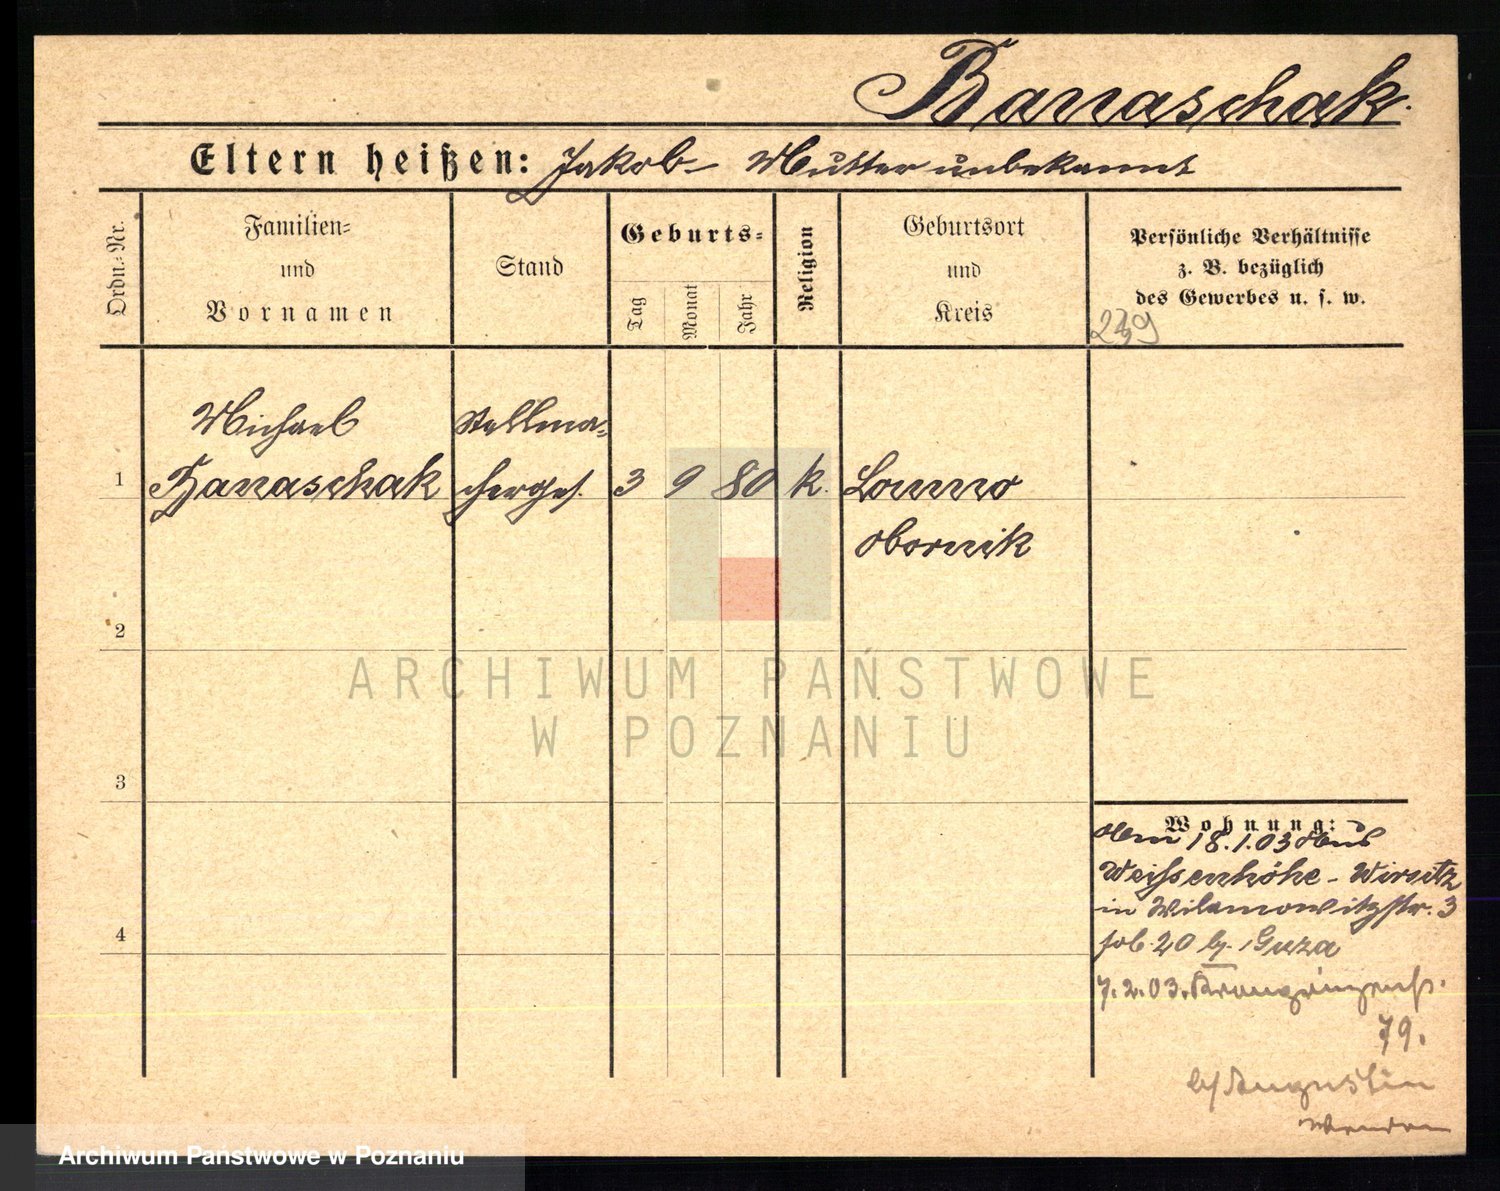 Banaschak.
Eltern heißen: Jakob – Mutter unbekannt
Ordn.-Nr.
Familien-
und
Vornamen
Stand
Geburts-
Tag
Monat
Jahr
Religion
Geburtsort
und
Kreis
Persönliche Verhältnisse
z. B. bezüglich
des Gewerbes u. s. w.
239
Michael
Stellma-
1 Banaschak cherges. 3 9 80 k. Lonno
Obornik
2
ARCHIWUM PAŃSTWOWE
W POZNANIU
3
Wohnung:
18.1.03 aus
Weißenhöhe - Wirsitz
in Wilamowitzstr. 3
20 b. Guza
7.2.03.
79.
b/ Augustin
wenden
4
Archiwum Państwowe w Poznaniu